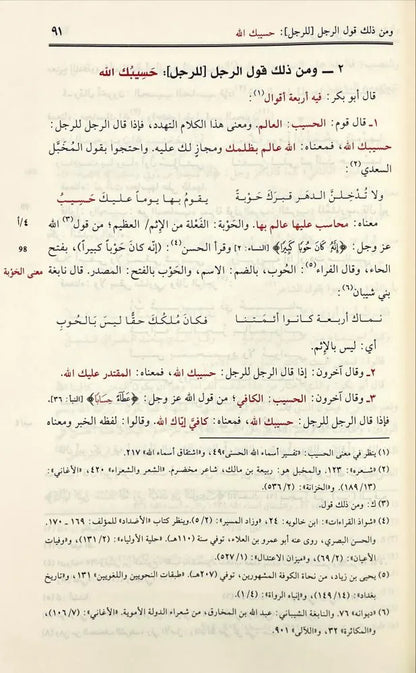 ومن ذلك قول الرجل [للرجل]: حسيبك الله ٩١
٢ ــ ومن ذلك قول الرجل [للرجل]: حَسِيبُك الله
قال أبو بكر: فيه أربعة أقوال(١):
١ـ قال قوم: الحسيب: العالم. ومعنى هذا الكلام التهدد، فإذا قال الرجل للرجل:
حسيبك الله، فمعناه: الله عالم بظلمك ومجازٍ لك عليه. واحتجوا بقول المُخَبَّل
السعدي(٢):
ولا تُدْخِلنَّ الدهر قبرَكَ حَوْبةً يقومُ بها يوماً عليك حَسِيبُ
معناه: محاسب عليها عالم بها. والحَوْبة: الفَعْلة من الإثم/ العظيم؛ من قول(٣) الله ٤/أ
عز وجل: ﴿إِنَّهُ كَانَ حُوبًا كَبِيرًا﴾ [النساء: ٢] وقرأ الحسن(٤): (إنّه كانَ حَوْباً كبيراً)، بفتح 98
الحاء، وقال الفراء(٥): الحُوب، بالضم: الاسم، والحَوْب بالفتح: المصدر. قال نابغة معنى الحَوْبة
بني شيبان(٦):
نماك أربعة كانوا أئمتنا فكانَ مُلكك حقًّا ليسَ بالحُوبِ
أي: ليس بالإثم.
٢ـ وقال آخرون: إذا قال الرجل للرجل: حسيبك الله، فمعناه: المقتدر عليك الله.
٣ـ وقال آخرون: الحسيب: الكافي؛ من قول الله عز وجل: ﴿عَطَاءً حِسَابًا﴾ [النبأ: ٣٦].
فإذا قال الرجل للرجل: حسيبك الله، فمعناه: كافيَّ إيّاك الله. وقالوا: لفظه الخبر ومعناه
(١) ينظر في معنى الحسيب: «تفسير أسماء الله الحسنى» ٤٩، و«اشتقاق أسماء الله» ٢١٧.
(٢) «شعره»: ١٢٣. والمخبل هو: ربيعة بن مالك، شاعر مخضرم. «الشعر والشعراء» ٤٢٠، «الأغاني»:
(١٨٩/١٣)، و«الخزانة»: (٥٣٦/٢).
(٣) ك: ومن ذلك قول.
(٤) «شواذ القراءات»: ابن خالويه: ٢٤، «وزاد المسير»: (٥/٢). وينظر كتاب «الأضداد» للمؤلف: ١٦٩ ـ ١٧٠.
والحسن البصري، روى عنه أبو عمرو بن العلاء، توفي سنة (١١٠هـ). «حلية الأولياء»: (١٣١/٢)، و«وفيات
الأعيان»: (٦٩/٢)، و«ميزان الاعتدال»: (٥٢٧/١).
(٥) يحيى بن زياد، من نحاة الكوفة المشهورين، توفي (٢٠٧هـ). «طبقات النحويين واللغويين» ١٣١، و«تاريخ
بغداد»: (١٤٩/١٤)، و«إنباه الرواة»: (١/٤).
(٦) «ديوانه» ٧٦. والنابغة الشيباني: عبد الله بن المخارق، من شعراء الدولة الأموية. «الأغاني»: (١٠٦/٧)،
و«المكاثرة» ٣٢، و«اللآلي» ٩٠١.